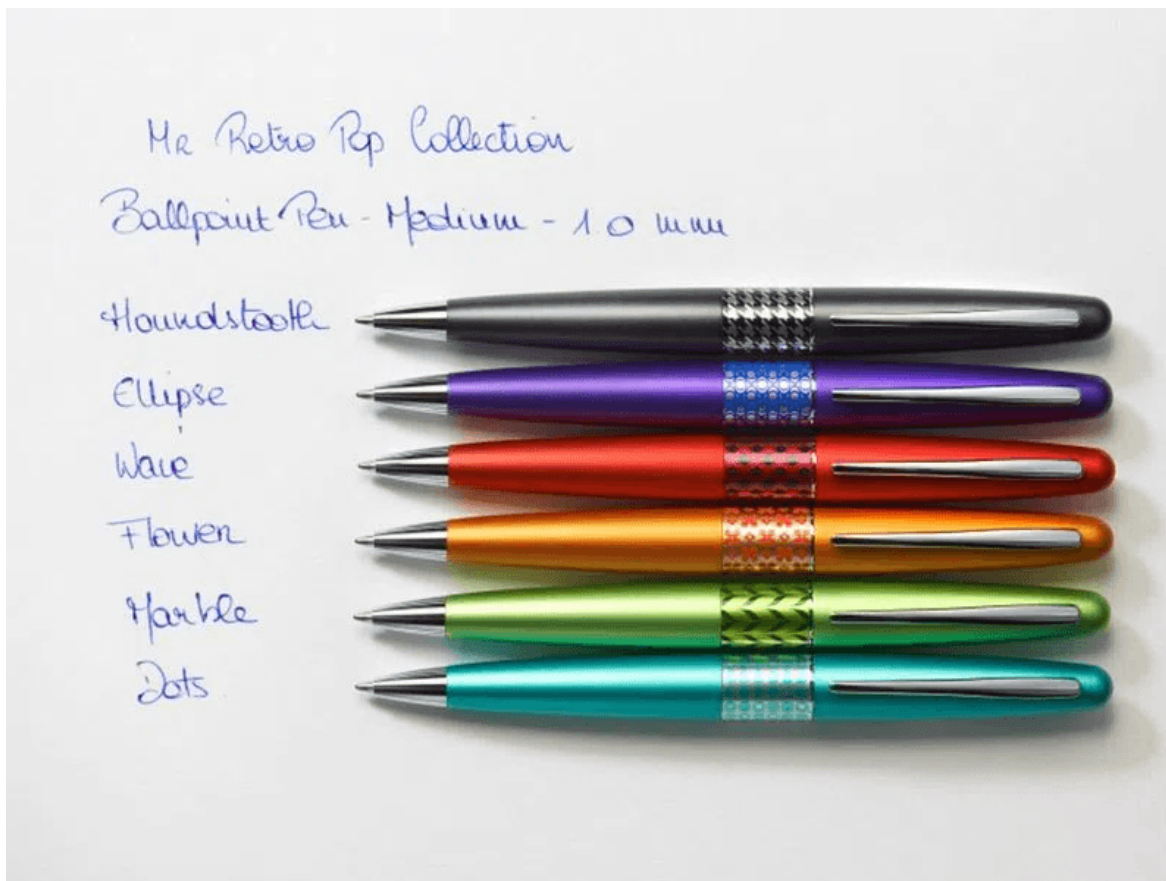 MR Retro Pop Collection
Ballpoint Pen - Medium - 1.0 mm
Houndstooth
Ellipse
Wave
Flower
Marble
Dots